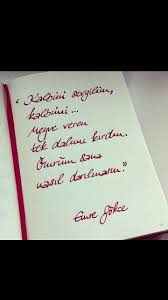 "Kalbini sevgilim,
kalbini...
Meyve veren
tek dalımı kırdın.
Ömrüm sana
nasıl darılmasın."
Emre Gökce